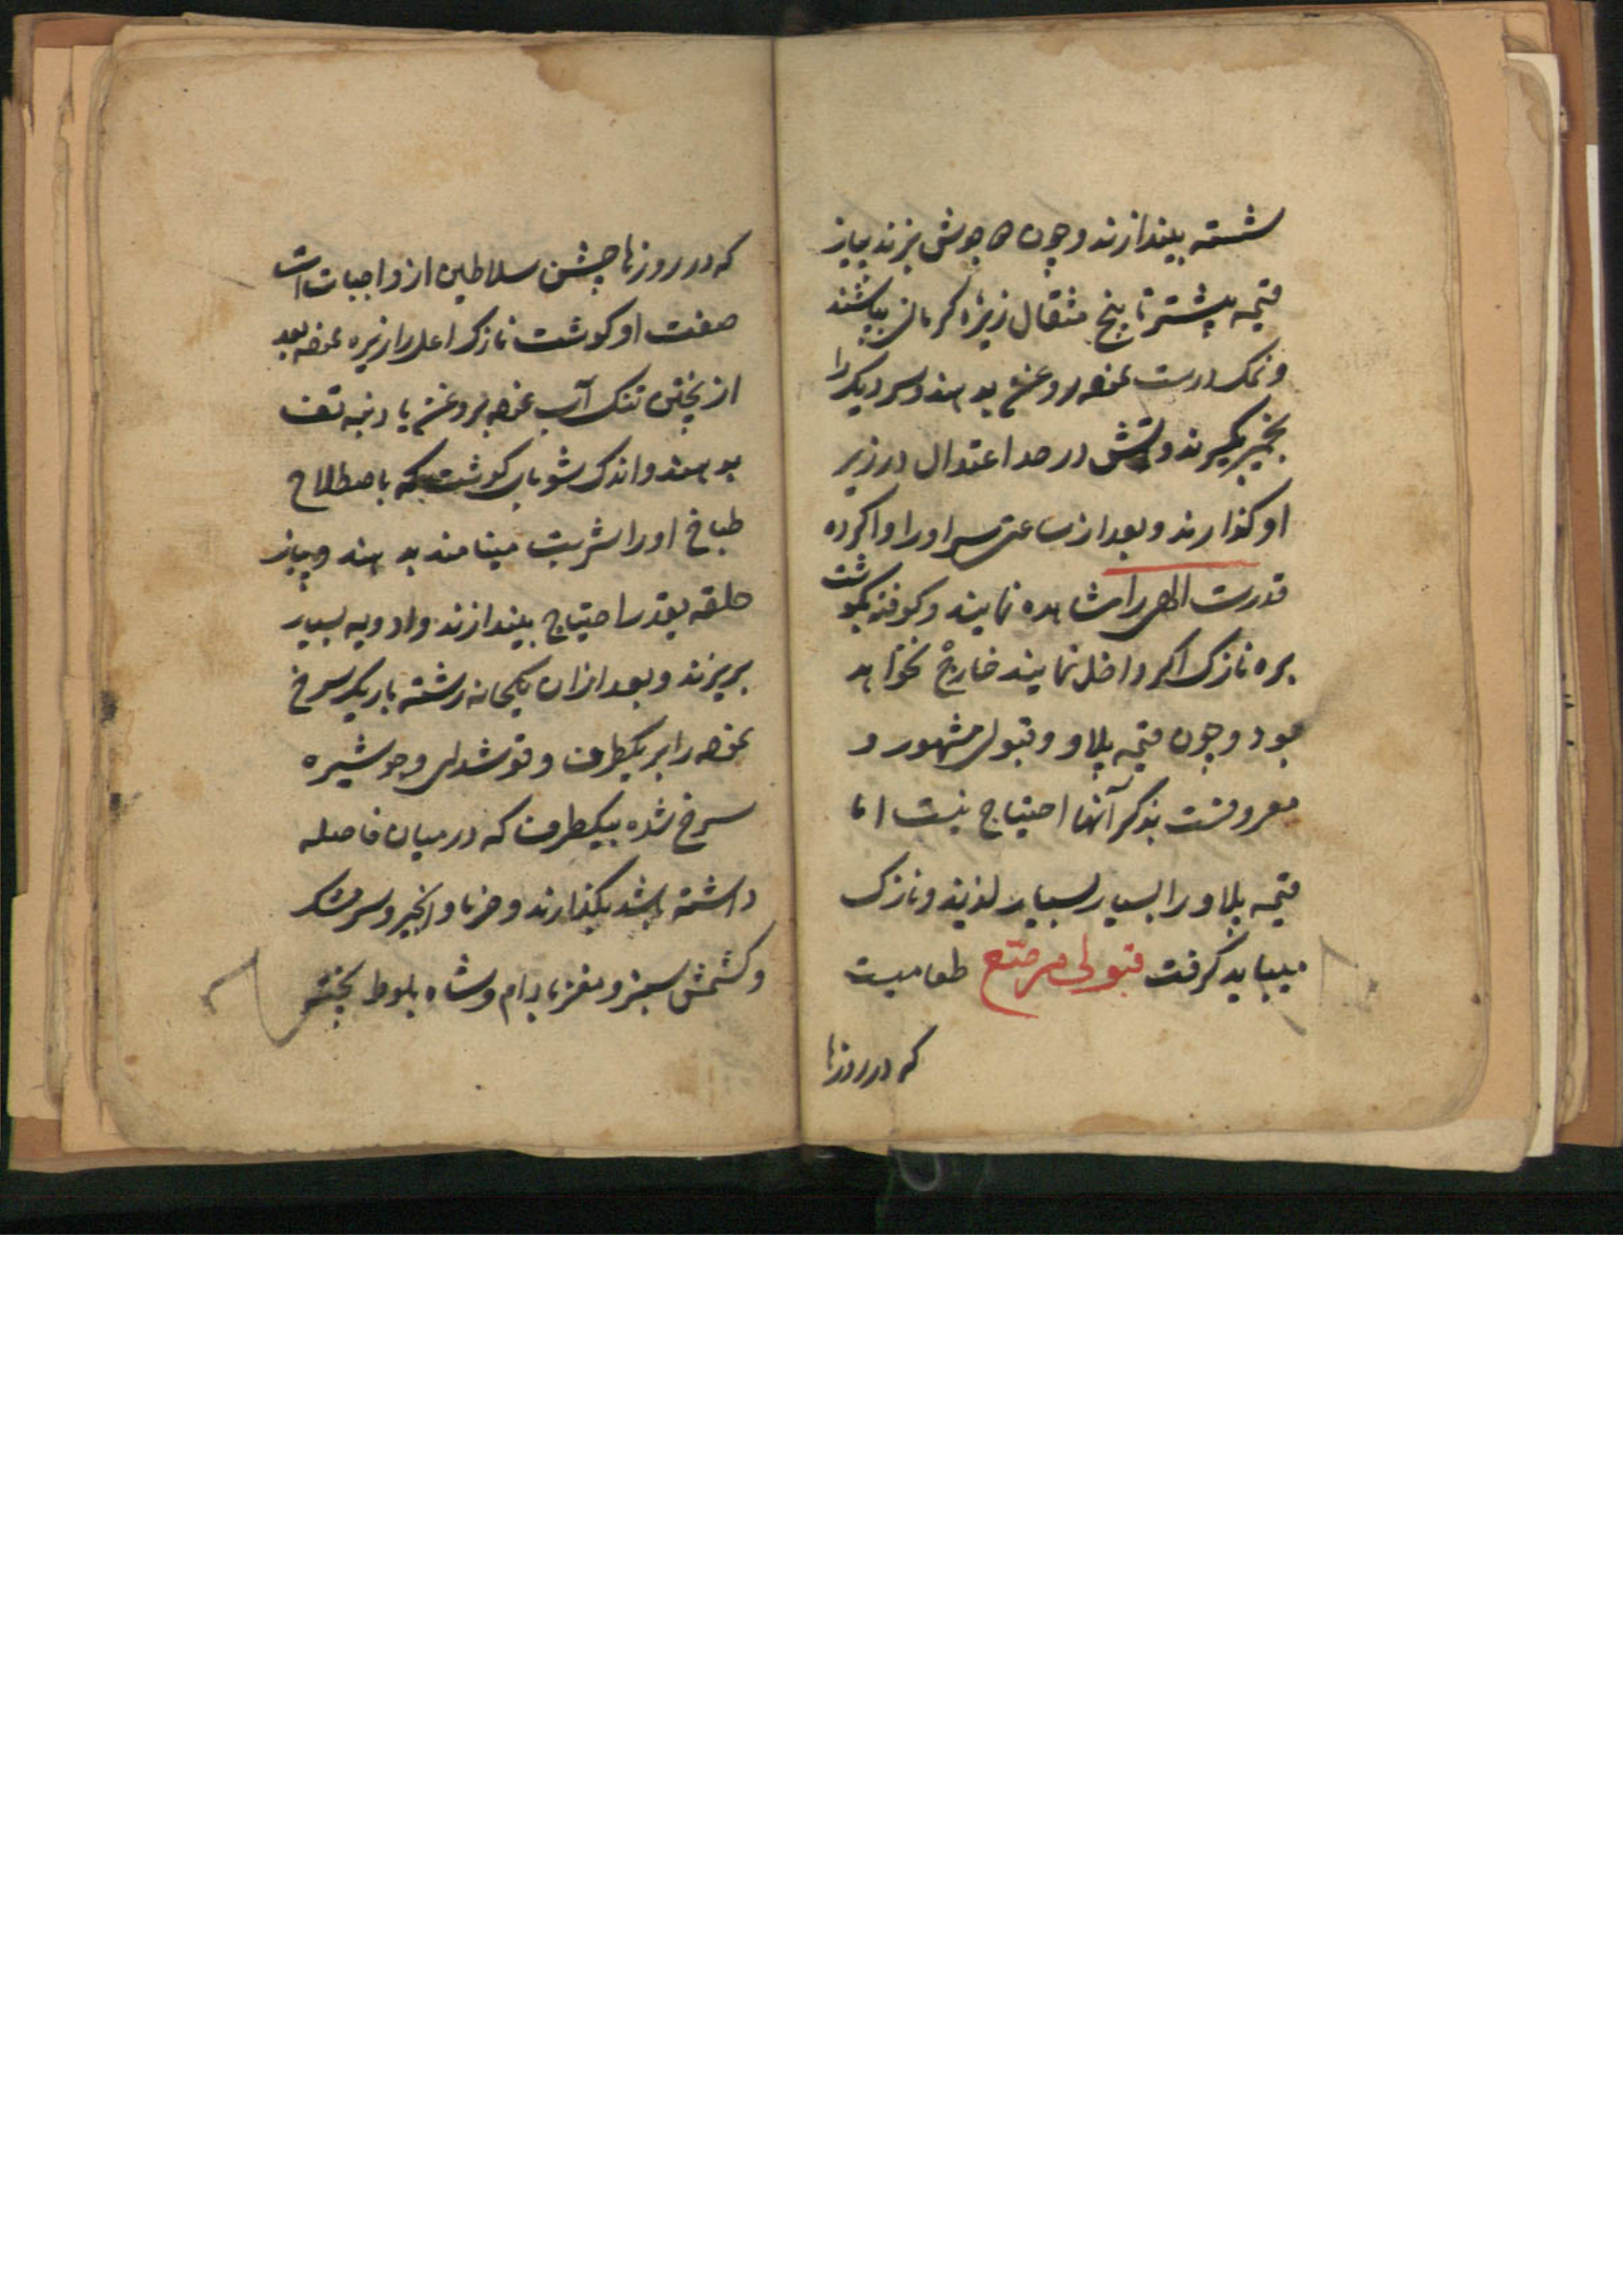 شسته بیندازند و چون ده جوش بزند پیاز
قیمه پیشتر تا پنج مثقال زیره کرمانی بپاشند
و نمک درست نموده روغن بدهند و سر دیک را
بخمیر بگیرند و آتش در حد اعتدال در زیر
او گذارند و بعد از ساعتی سر او را وا کرده
قدرت الهی را مشاهده نمایند و کوفته گوشت
بره نازک اکر داخل نمایند خارج نخواهد
بود و چون قیمه پلاو و قبولی مشهور و
معروفست بذکر آنها احتیاج نیست اما
قیمه پلاو را بسیار بسیار لذیذ و نازک
میباید کرفت قبولی مرصّع طعامیست
که در روزها
که در روزها جشن سلاطین از واجبات است
صفت او کوشت نازک اعلا را زیره نموده بعد
از پختن تنک آب نموده بروغن یا دنبه تف
بدهند و اندک شوربای کوشت که باصطلاح
طباخ او را شربت مینامند بدهند و پیاز
حلقه بقدر احتیاج بیندازند و ادویه بسیار
بریزند و بعد از ان یکخانه رشته باریک سرخ
نموده را بر یکطرف و قوشدلی و جوشیره
سرخ شده بیکطرف که در میان فاصله
داشته باشد بگذارند و خرما و انجیر و سر
و کشمش سبز و مغز بادام و شاه بلوط پخته